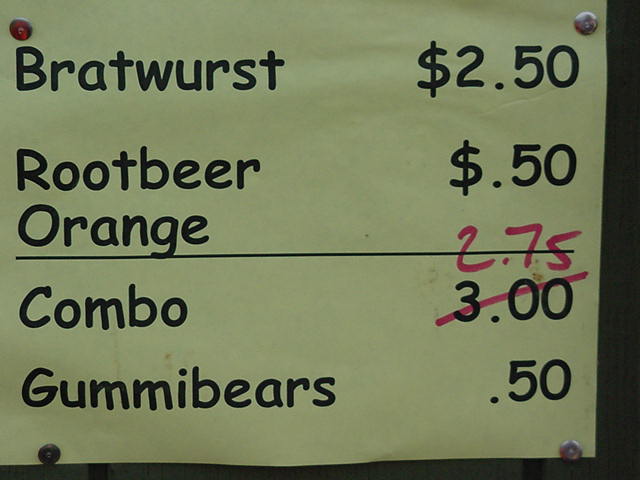 Bratwurst $2.50
Rootbeer $.50
Orange
2.75
Combo 3.00
Gummibears .50